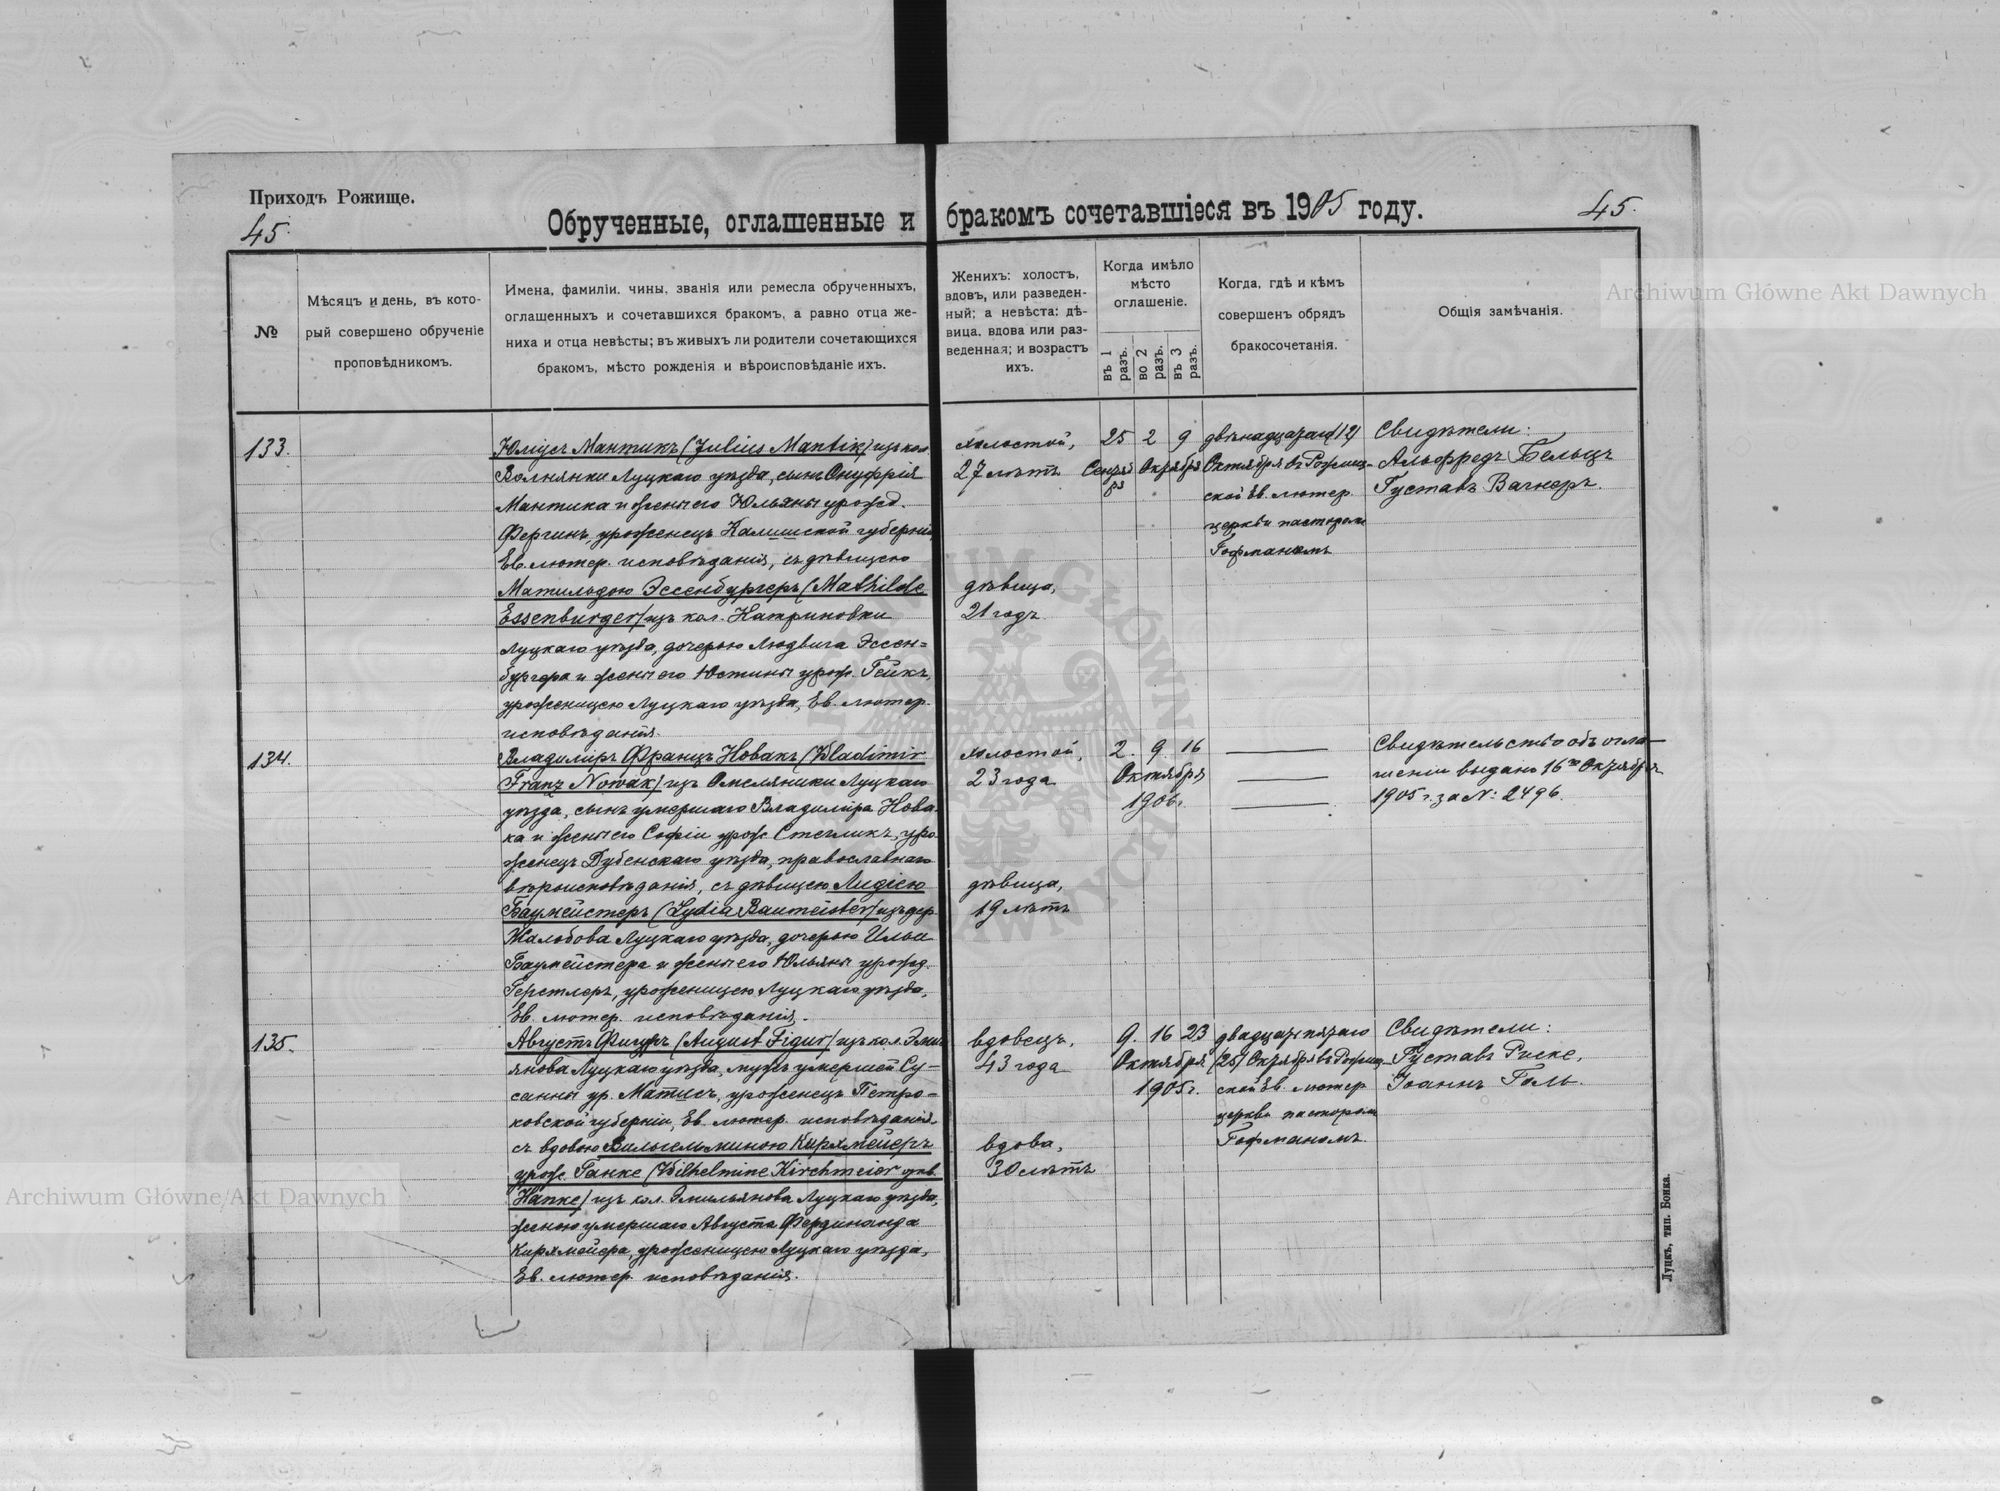 Приходъ Рожище.
45.
Обрученные, оглашенные и бракомъ сочетавшіеся въ 1905 году.
45.
№
Мѣсяцъ и день, въ кото-
рый совершено обрученіе
проповѣдникомъ.
Имена, фамиліи, чины, званія или ремесла обрученныхъ,
оглашенныхъ и сочетавшихся бракомъ, а равно отца же-
ниха и отца невѣсты; въ живыхъ ли родители сочетающихся
бракомъ, мѣсто рожденія и вѣроисповѣданіе ихъ.
Женихъ: холостъ,
вдовъ, или разведен-
ный; а невѣста: дѣ-
вица, вдова или раз-
веденная; и возрастъ
ихъ.
Когда имѣло
мѣсто
оглашеніе.
въ 1 разъ.
во 2 разъ.
въ 3 разъ.
Когда, гдѣ и кѣмъ
совершенъ обрядъ
бракосочетанія.
Общія замѣчанія.
Archiwum Główne Akt Dawnych
133.
Юліусъ Мантикъ (Julius Mantik) изъ кол.
Волнянки Луцкаго уѣзда, сынъ Онуфрія
Мантика и жены его Юльяны урожд.
Фергинъ, уроженецъ Калишской губерніи,
Ев. лютер. исповѣданія, съ дѣвицею
Матильдою Эссенбургеръ (Mathilde
Essenburger) изъ кол. Катриновки
Луцкаго уѣзда, дочерью Людвига Эссен=
бургера и жены его Юстины урож. Гейкъ,
уроженицею Луцкаго уѣзда, Ев. лютер.
исповѣданія.
холостой,
27 лѣтъ
дѣвица,
21 годъ
25 2 9
Сентяб
ря
Октября
двѣнадцатаго (12)
Октября въ Рожищ-
ской Ев. лютер.
церкви пасторомъ
Гофманомъ
Свидѣтели:
Альфредъ Бельцъ
Густавъ Вагнеръ.
134.
Владиміръ Францъ Новакъ (Wladimir
Franz Nowak) изъ Омеляники Луцкаго
уѣзда, сынъ умершаго Владиміра Нова-
ка и жены его Софіи урож. Стеглихъ, уро-
женецъ Дубенскаго уѣзда, православнаго
вѣроисповѣданія, съ дѣвицею Лидіею
Баумейстеръ (Lydia Baumeister) изъ дер.
Жалобова Луцкаго уѣзда, дочерью Ильи
Баумейстера и жены его Юльяны урожд.
Герстлеръ, уроженицею Луцкаго уѣзда,
Ев. лютер. исповѣданія.
холостой,
23 года
дѣвица,
19 лѣтъ
2. 9. 16
Октября
1905 г.
Свидѣтельство объ огла-
шеніи выдано 16го Октября
1905 г. за №: 2496.
135.
Августъ Фигуръ (August Figur) изъ кол. Эмил-
янова Луцкаго уѣзда, мужъ умершей Су-
санны ур. Матисъ, уроженецъ Петро-
ковской губерніи, Ев. лютер. исповѣданія,
съ вдовою Вильгельминою Кирхмейеръ
урож. Ганке (Wilhelmine Kirchmeier geb.
Hanke) изъ кол. Эмильянова Луцкаго уѣзда,
женою умершаго Августа Фердинанда
Кирхмейера, уроженицею Луцкаго уѣзда,
Ев. лютер. исповѣданія.
вдовецъ,
43 года
вдова,
30 лѣтъ
9. 16 23
Октября
1905 г.
двадцать пятаго
(25) Октября въ Рожищ-
ской Ев. лютер.
церкви пасторомъ
Гофманомъ.
Свидѣтели:
Густавъ Риске,
Іоаннъ Голь.
Archiwum Główne Akt Dawnych
Луцкъ, тип. Бонка.